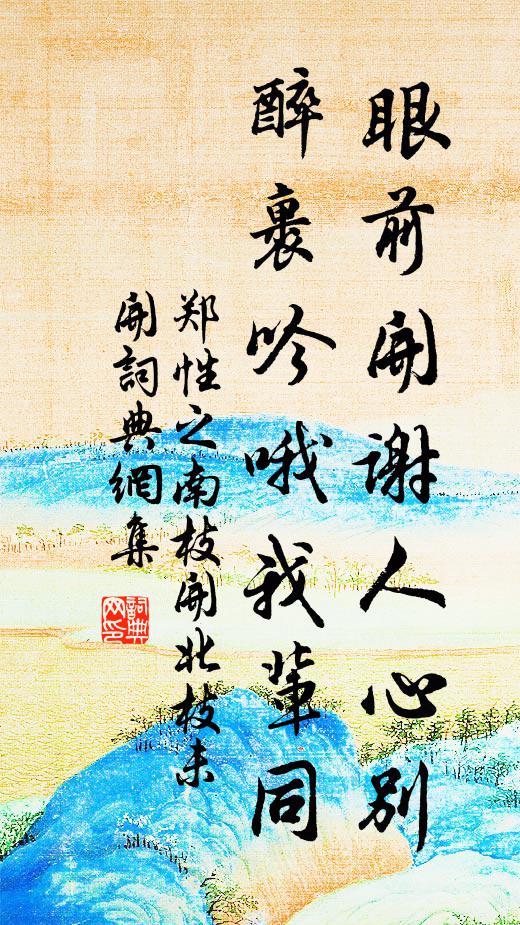 眼前開謝人心別
醉裏吟哦我輩同
郑性之南枝開北枝未
開詞典網集
詞典网印